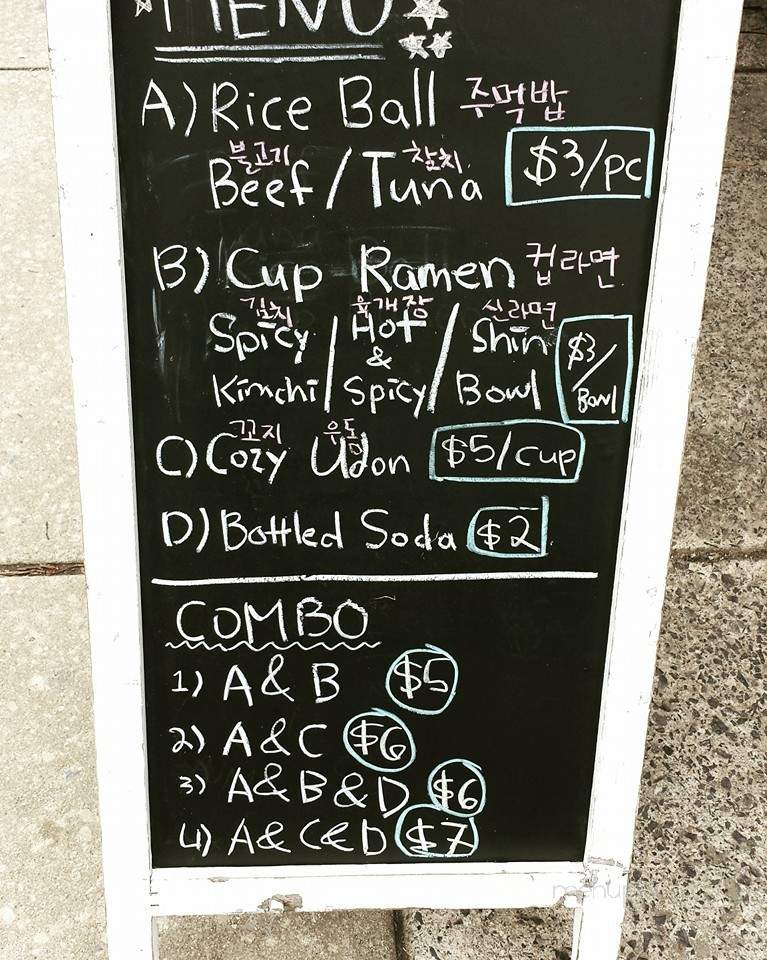 MENU
A) Rice Ball 주먹밥
불고기 참치
Beef / Tuna $3/pc
B) Cup Ramen 컵라면
김치 육개장 신라면
Spicy / Hot / Shin $3
& /
Kimchi / Spicy / Bowl Bowl
꼬지 우동
C) Cozy Udon $5/cup
D) Bottled Soda $2
COMBO
1) A & B $5
2) A & C $6
3) A & B & D $6
4) A & C & D $7